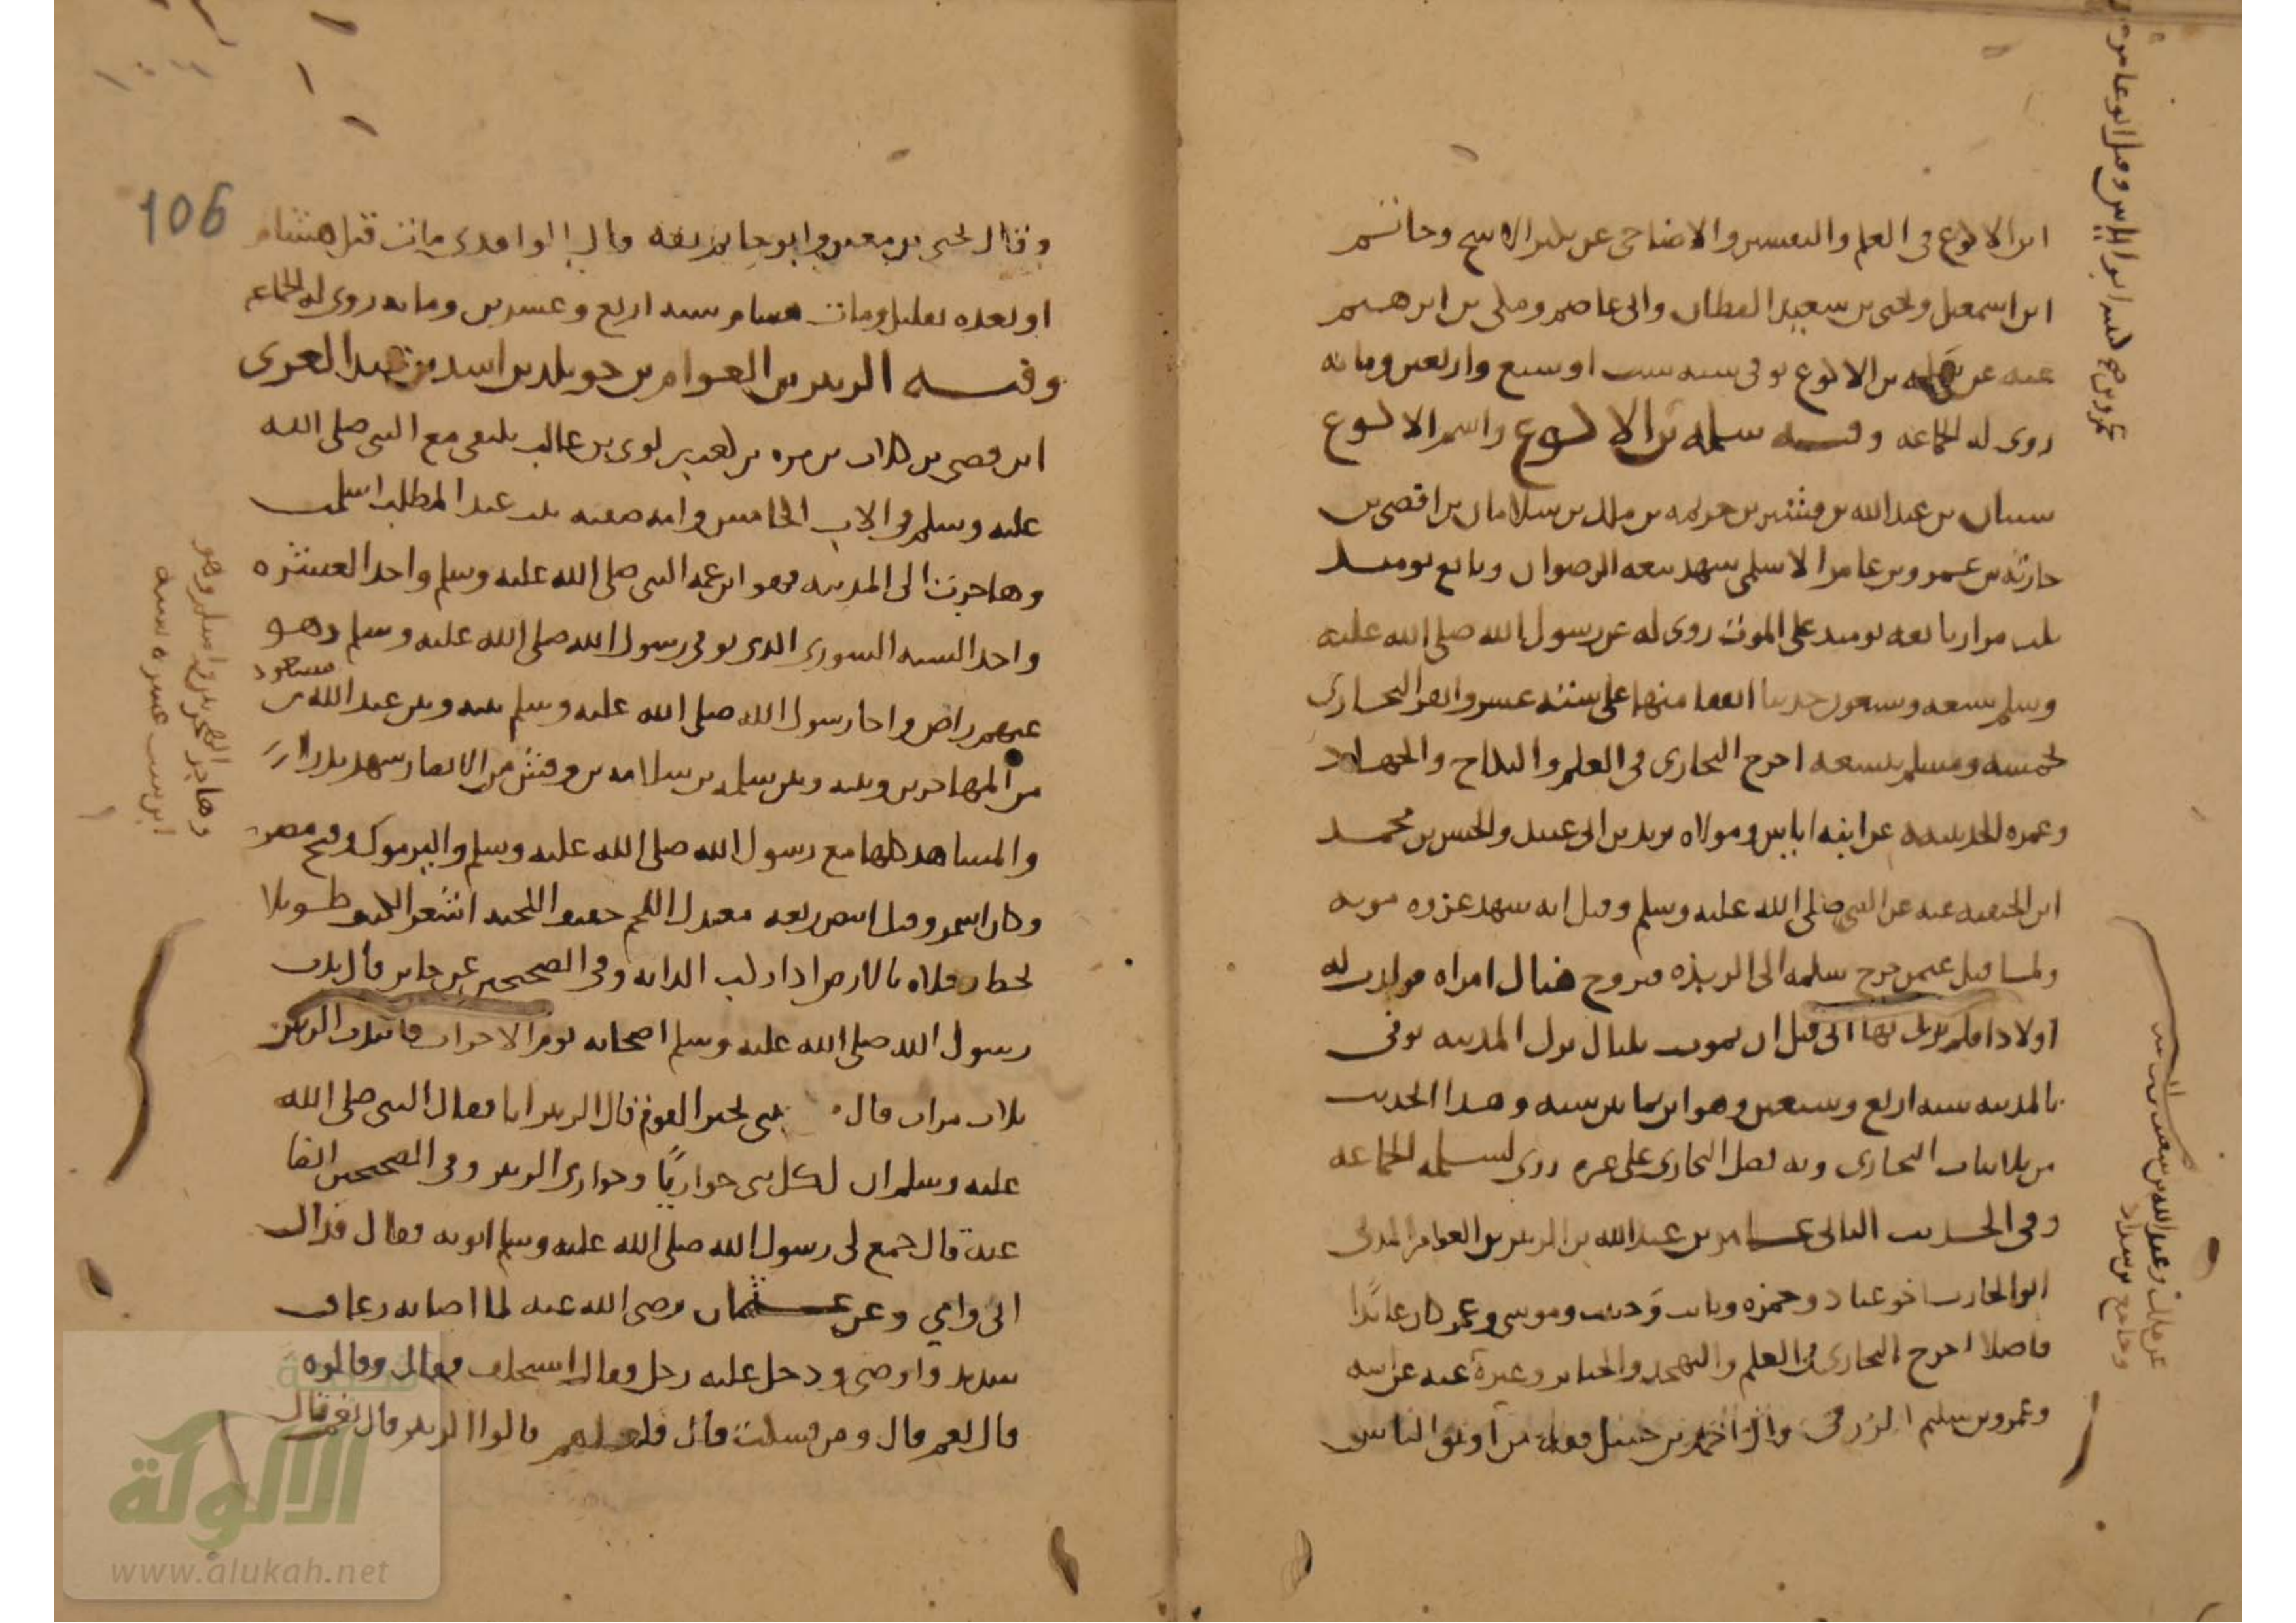 ابن الاكوع في العلم والتفسير والاضاحي عن بكير الاشج وحاتم
ابن اسمعيل ويحيى بن سعيد القطان وابي عاصم ومكي بن ابرهيم
عنه عن سلمه بن الاكوع توفي سنه ست او سبع واربعين ومائه
روى له الجماعه وفيه سلمه بن الاكوع واسم الاكوع
سنان بن عبد الله بن قشير بن خزيمه بن ملك بن سلامان بن افصى بن
حارثه بن عمرو بن عامر الاسلمي شهد بيعه الرضوان وبايع يومئذ
ثلث مرار بايعه يومئذ على الموت روى له عن رسول الله صلى الله عليه
وسلم سبعه وسبعون حديثا اتفقا منها على سته عشر وانفرد البخاري
بخمسه ومسلم بتسعه اخرج البخاري في العلم والنكاح والجهاد
وعمره الحديبيه عن ابنه اياس ومولاه يزيد بن ابي عبيد والحسن بن محمد
ابن الحنفيه عنه عن النبي صلى الله عليه وسلم وقيل انه شهد غزوه موته
ولما قتل عثمن خرج سلمه الى الربذه فتزوج هناك امراه فولدت له
اولادا فلم يزل بها الى قبل ان يموت بليال نزل المدينه توفي
بالمدينه سنه اربع وسبعين وهو ابن ثمانين سنه وهذا الحديث
من ثلاثيات البخاري وبه فضل البخاري على غيره روى لسلمه الجماعه
وفي الحديث الثاني عامر بن عبد الله بن الزبير بن العوام المدني
ابو الحارث اخو عباد وحمزه وثابت وخبيب وموسى وعمر كان عابدا
فاضلا اخرج البخاري في العلم والتهجد والجنايز وغيره عنه عن ابيه
وعمرو بن سليم الزرقي وقال احمد بن حنبل ثقه من اوثق الناس
وقال يحيى بن معين وابو حاتم ثقه قال الواقدي مات قبل هشام
او بعده بقليل ومات هشام سنه اربع وعشرين ومائه روى له الجماعه
وفيه الزبير بن العوام بن خويلد بن اسد بن عبد العزى
ابن قصي بن كلاب بن مره بن كعب بن لوي بن غالب يلتقي مع النبي صلى الله
عليه وسلم في الاب الخامس وامه صفيه بنت عبد المطلب اسلمت
وهاجرت الى المدينه فهو ابن عمه النبي صلى الله عليه وسلم واحد العشره
واحد السته الشورى الذي توفي رسول الله صلى الله عليه وسلم وهو
عنهم راض واخا رسول الله صلى الله عليه وسلم بينه وبين عبد الله بن مسعود
من المهاجرين وبينه وبين سلمه بن سلامه بن وقش من الانصار شهد بدرا
والمشاهد كلها مع رسول الله صلى الله عليه وسلم واليرموك وفتح مصر
وكان اسمر وقيل ابيض ربعه معتدل اللحم خفيف اللحيه اشعر الكتف طويلا
تخط رجلاه بالارض اذا ركب الدابه وفي الصحيحين عن جابر قال ندب
رسول الله صلى الله عليه وسلم اصحابه يوم الاحزاب فانتدب الزبير
ثلاث مرات قال من ياتيني بخبر القوم قال الزبير انا فقال النبي صلى الله
عليه وسلم ان لكل نبي حواريًا وحواري الزبير وفي الصحيحين ايضا
عنه قال جمع لي رسول الله صلى الله عليه وسلم ابويه فقال فداك
ابي وامي وعن عثمان رضي الله عنه لما اصابه رعاف
شديد واوصى ودخل عليه رجل وقال استخلف فقال وقالوه
قال نعم قال ومن فسكت قال فلعلهم قالوا الزبير قال نعم قال
وهاجر الهجرتين واسلم وهو
ابن ست عشره سنه
106
الألوكة
www.alukah.net